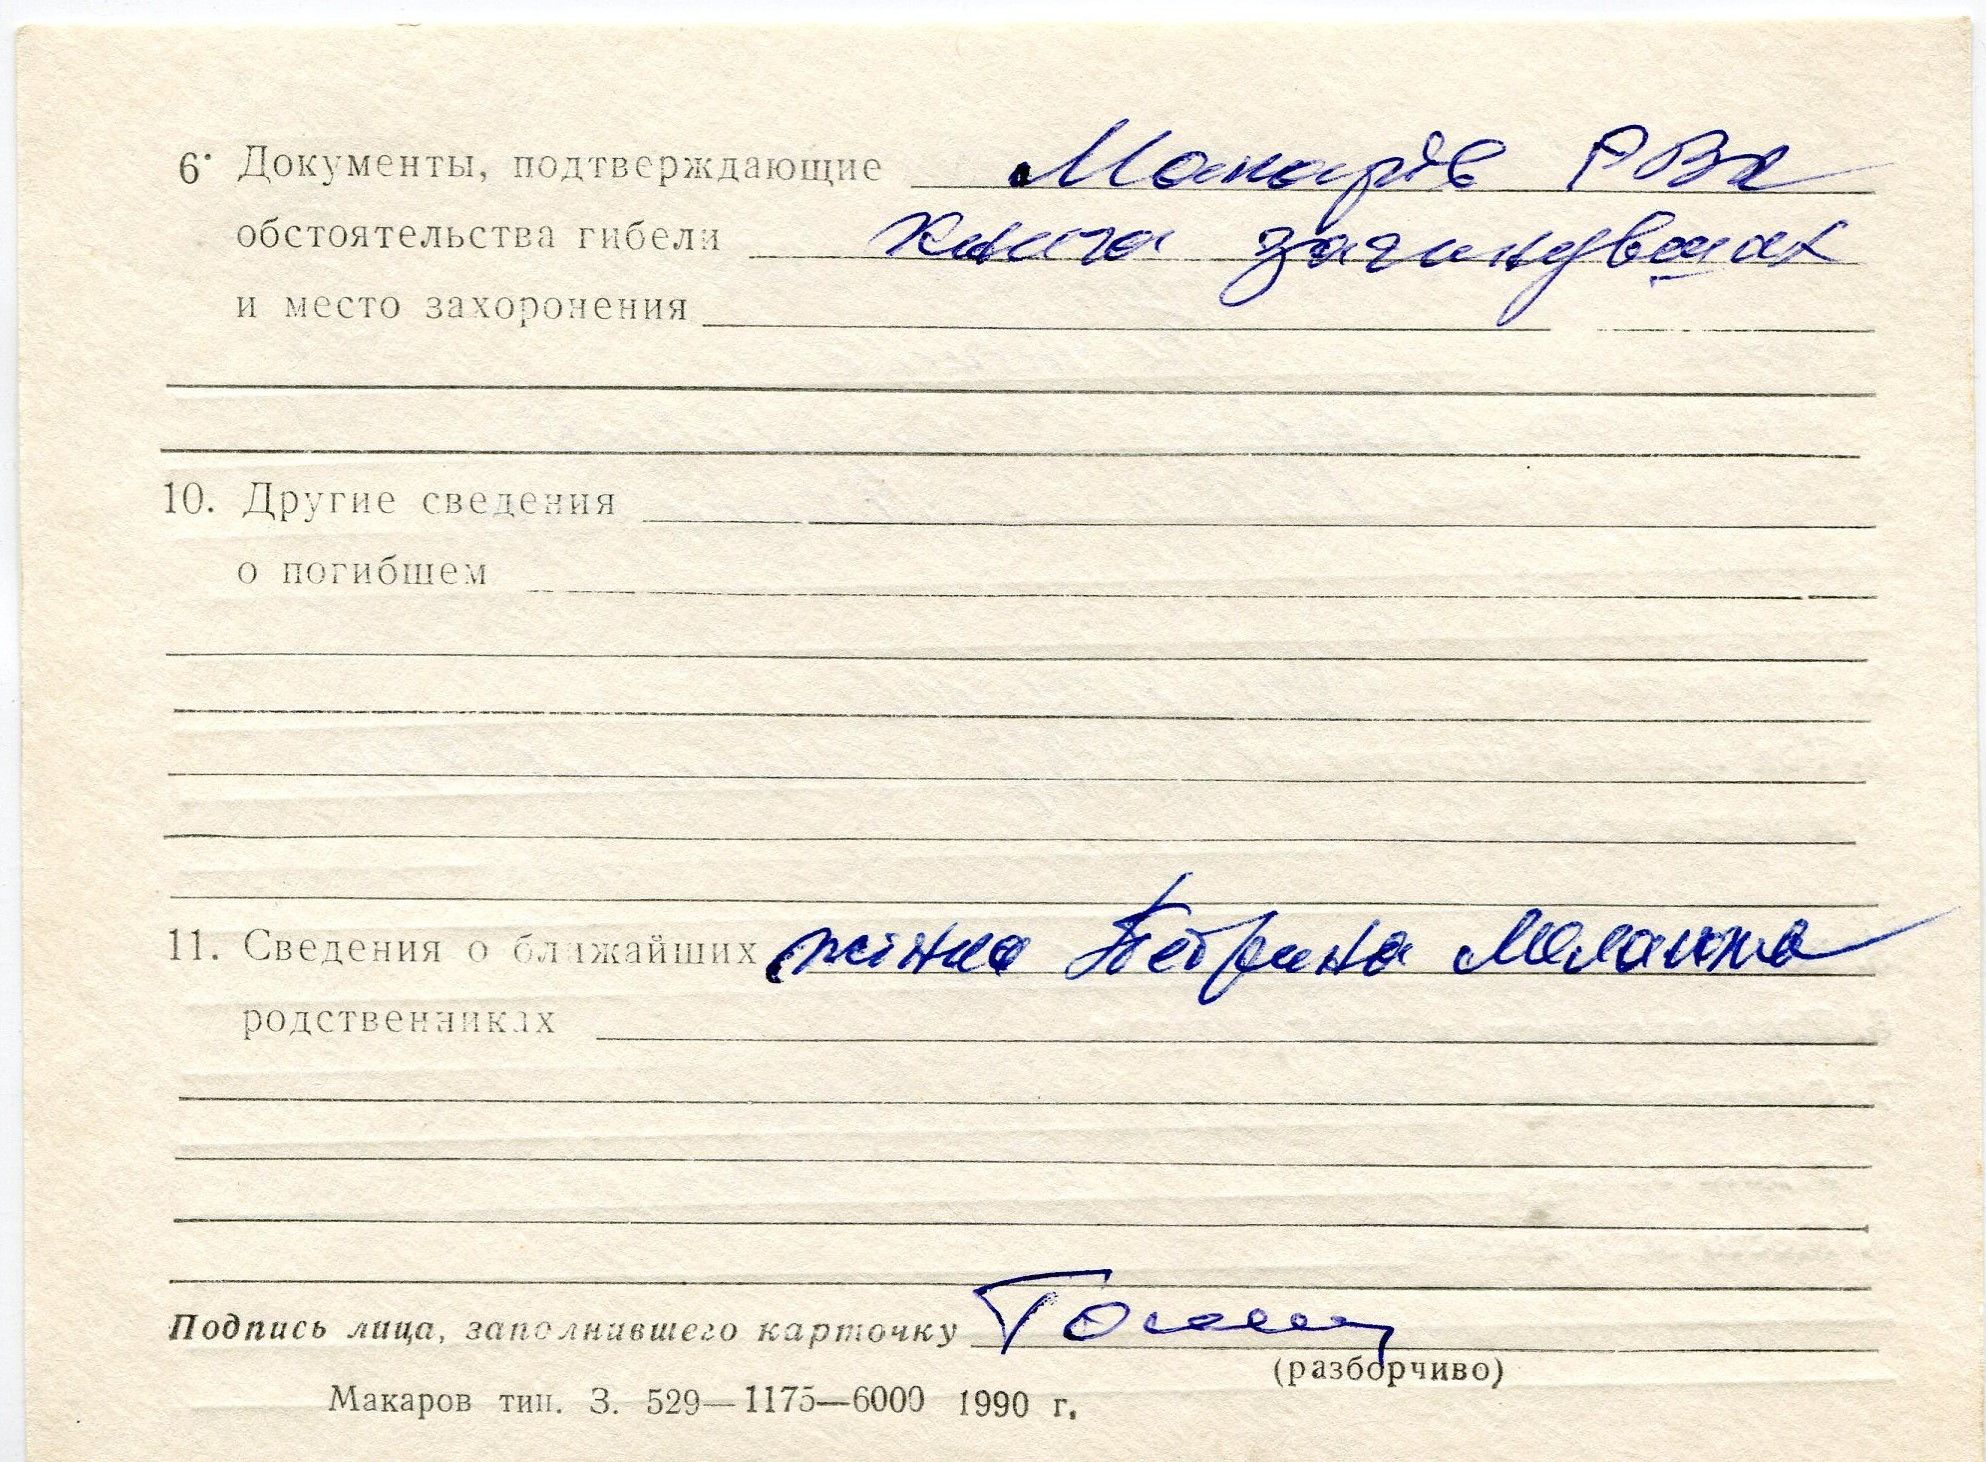 6. Документы, подтверждающие Макарів РВк
обстоятельства гибели книга загинувших
и место захоронения
10. Другие сведения
о погибшем
11. Сведения о ближайших жінка Меланка
родственниках
Подпись лица, заполнившего карточку
(разборчиво)
Макаров тип. З. 529—1175—6000 1990 г.